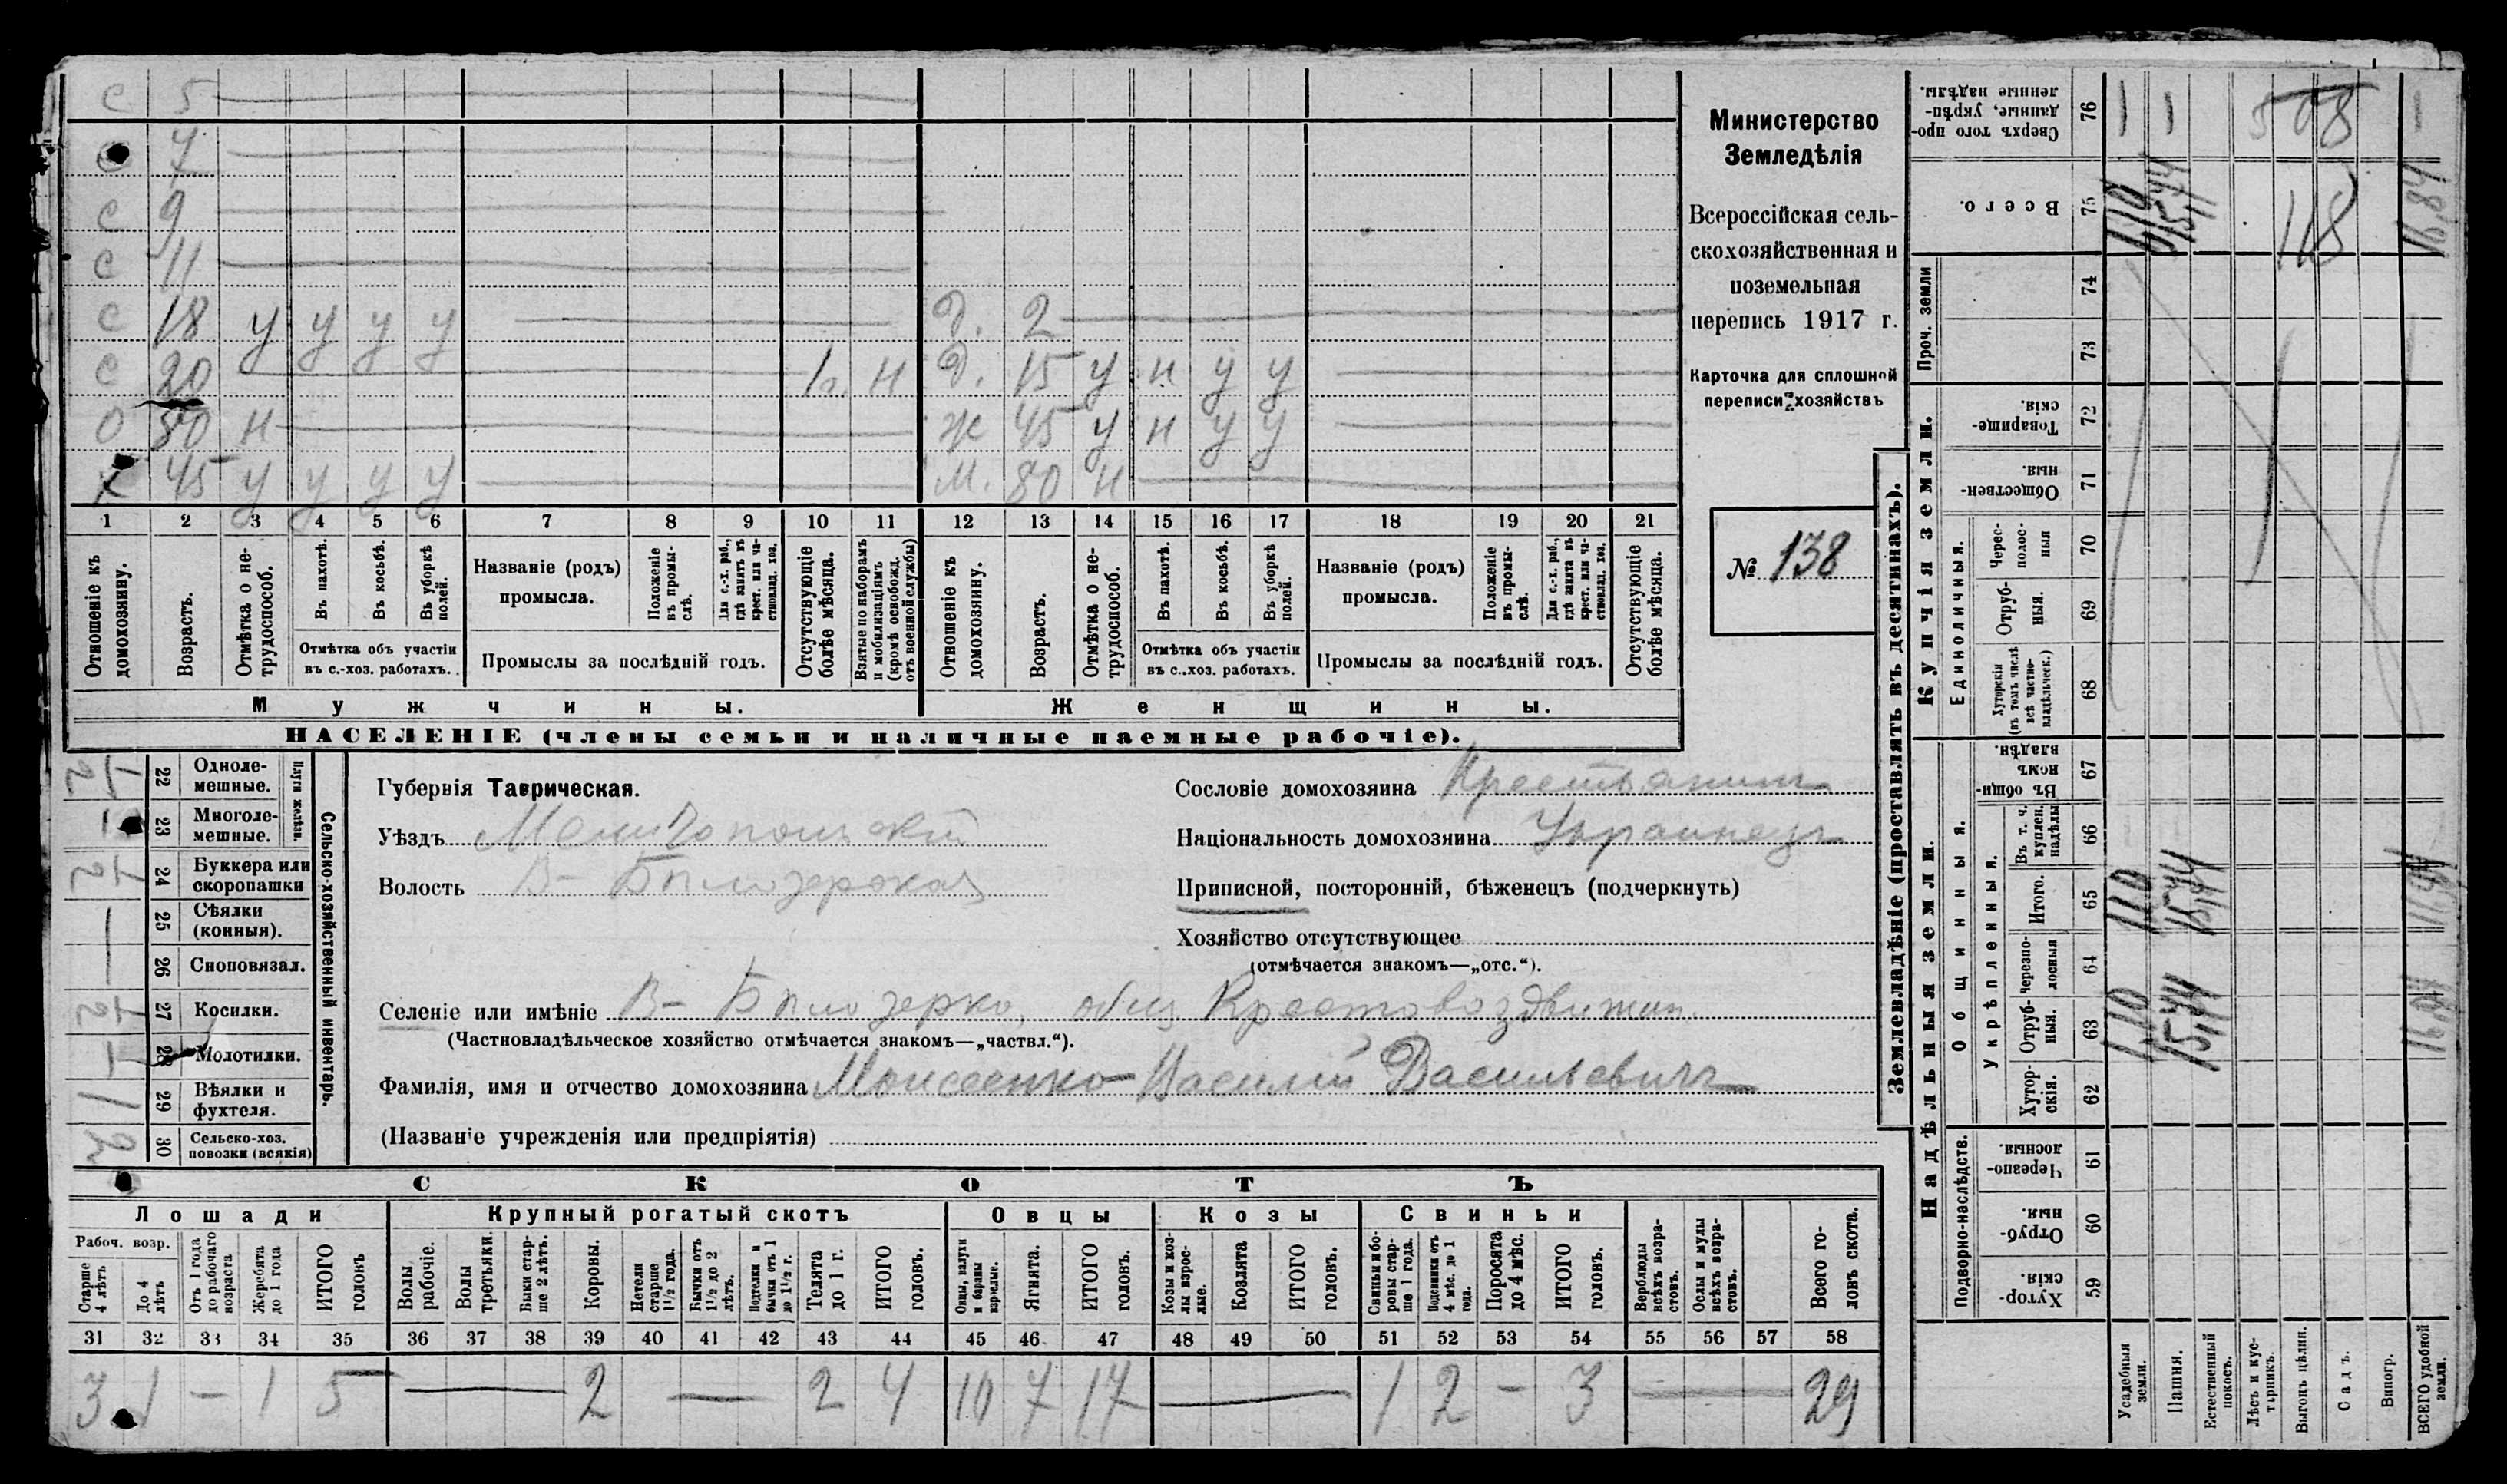 с 5
с 7
с 9
с 11
с 18 у у у у д. 2
с 20 1г. н д. 15 у н у у
о 80 н ж 45 у н у у
х 45 у у у у м. 80 н
1 2 3 4 5 6 7 8 9 10 11 12 13 14 15 16 17 18 19 20 21
Отношеніе къ домохозяину.
Возрастъ.
Отмѣтка о нетрудоспособ.
Въ пахотѣ.
Въ косьбѣ.
Въ уборкѣ полей.
Отмѣтка объ участіи въ с.-хоз. работахъ.
Названіе (родъ) промысла.
Положеніе въ промыслѣ.
Для с.-х. раб., гдѣ занятъ въ крест. или частновлад. хоз.
Промыслы за послѣдній годъ.
Отсутствующіе болѣе мѣсяца.
Взятые по наборамъ и мобилизаціямъ (кромѣ освобожд. отъ военной службы)
Отношеніе къ домохозяину.
Возрастъ.
Отмѣтка о нетрудоспособ.
Въ пахотѣ.
Въ косьбѣ.
Въ уборкѣ полей.
Отмѣтка объ участіи въ с..хоз. работахъ.
Названіе (родъ) промысла.
Положеніе въ промыслѣ.
Для с.-х. раб., гдѣ занята въ крест. или частновлад. хоз.
Промыслы за послѣдній годъ.
Отсутствующіе болѣе мѣсяца.
Мужчины. Женщины.
НАСЕЛЕНІЕ (члены семьи и наличные наемные рабочіе).
Министерство
Земледѣлія
Всероссійская сель-
скохозяйственная и
поземельная
перепись 1917 г.
Карточка для сплошной
переписи хозяйствъ
№ 138
Сельско-хозяйственный инвентарь.
Плуги желѣзн.
22 Однолемешные.
23 Многолемешные.
24 Буккера или скоропашки
25 Сѣялки (конныя).
26 Сноповязал.
27 Косилки.
28 Молотилки.
29 Вѣялки и фухтеля. 1
30 Сельско-хоз. повозки (всякія) 2
Губернія Таврическая.
Уѣздъ Мелитопольскій
Волость В- Бѣлозерская
Сословіе домохозяина Крестьянинъ
Національность домохозяина Украинецъ
Приписной, посторонній, бѣженецъ (подчеркнуть)
Хозяйство отсутствующее
(отмѣчается знакомъ—„отс.“).
Селеніе или имѣніе В- Бѣлозерка, общ Крестовоздвижен.
(Частновладѣльческое хозяйство отмѣчается знакомъ—„частвл.“).
Фамилія, имя и отчество домохозяина Моисеенко Василій Васильевичъ
(Названіе учрежденія или предпріятія)
СКОТЪ
Лошади Крупный рогатый скотъ Овцы Козы Свиньи
Рабоч. возр.
Старше 4 лѣтъ
До 4 лѣтъ
Отъ 1 года до рабочаго возраста
Жеребята до 1 года
ИТОГО головъ
Волы рабочіе.
Волы третьяки.
Быки старше 2 лѣтъ.
Коровы.
Нетели старше 1½ года.
Бычки отъ 1½ до 2 лѣтъ.
Подтелки и бычки отъ 1 до 1½ г.
Телята до 1 г.
ИТОГО головъ.
Овцы, валухи и бараны взрослые.
Ягнята.
ИТОГО головъ.
Козы и козлы взрослые.
Козлята
ИТОГО головъ.
Свиньи и боровы старше 1 года.
Подсвинки отъ 4 мѣс. до 1 года.
Поросята до 4 мѣс.
ИТОГО головъ.
Верблюды всѣхъ возрастовъ.
Ослы и мулы всѣхъ возрастовъ.
Всего головъ скота.
31 32 33 34 35 36 37 38 39 40 41 42 43 44 45 46 47 48 49 50 51 52 53 54 55 56 57 58
3 1 — 1 5 — 2 — 2 4 10 7 17 — 1 2 — 3 — 29
Землевладѣніе (проставлять въ десятинахъ).
Надѣльныя земли.
Купчія земли.
Проч. земли
Подворно-наслѣдств.
Общинныя.
Укрѣпленныя.
Единоличныя.
Сверхъ того проданные, укрѣпленные надѣлы. 76
Всего. 75
74
73
Товарищескія. 72
Общественныя 71
Чересполосныя 70
Отрубныя. 69
Хуторскія (въ томъ числѣ всѣ частновладѣльческ.) 68
Въ общинномъ владѣн. 67
Въ т. ч. куплен. надѣлы 66
Итого. 65
Черезполосныя 64
Отрубныя. 63
Хуторскія. 62
Черезполосныя 61
Отрубныя. 60
Хуторскія. 59
Усадебныя земли.
Пашня.
Естественный покосъ.
Лѣсъ и кустарникъ.
Выгонъ цѣлин.
Садъ.
Виногр.
ВСЕГО удобной земли.
1,10 15,44
1,10 15,44
508
118